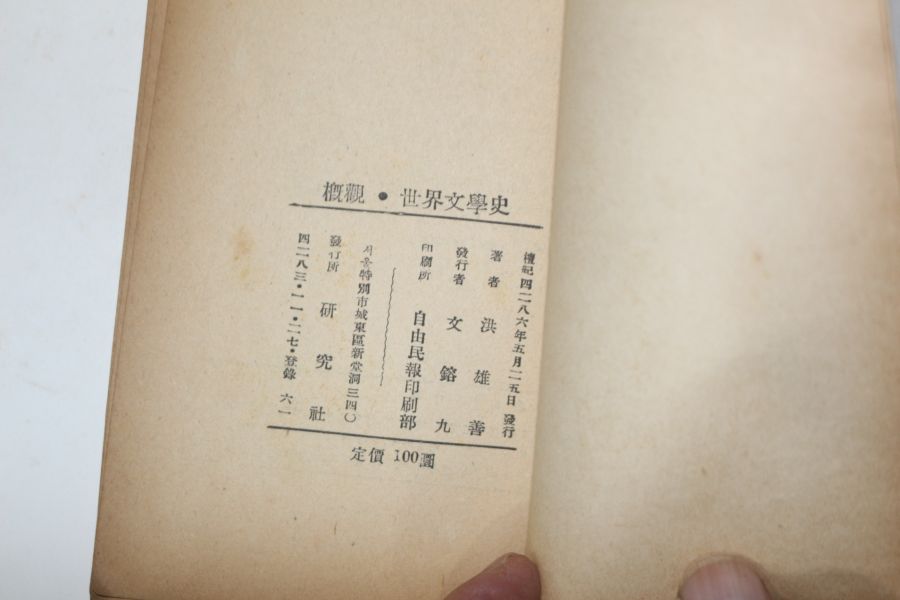 概觀 • 世界文學史
檀紀四二八六年五月二五日 發行
著者 洪雄善
發行者 文鎔九
印刷所 自由民報印刷部
서울特別市城東區新堂洞三四〇
發行所 硏究社
四二八三·一一·二七·登錄 六一
定價 100圜